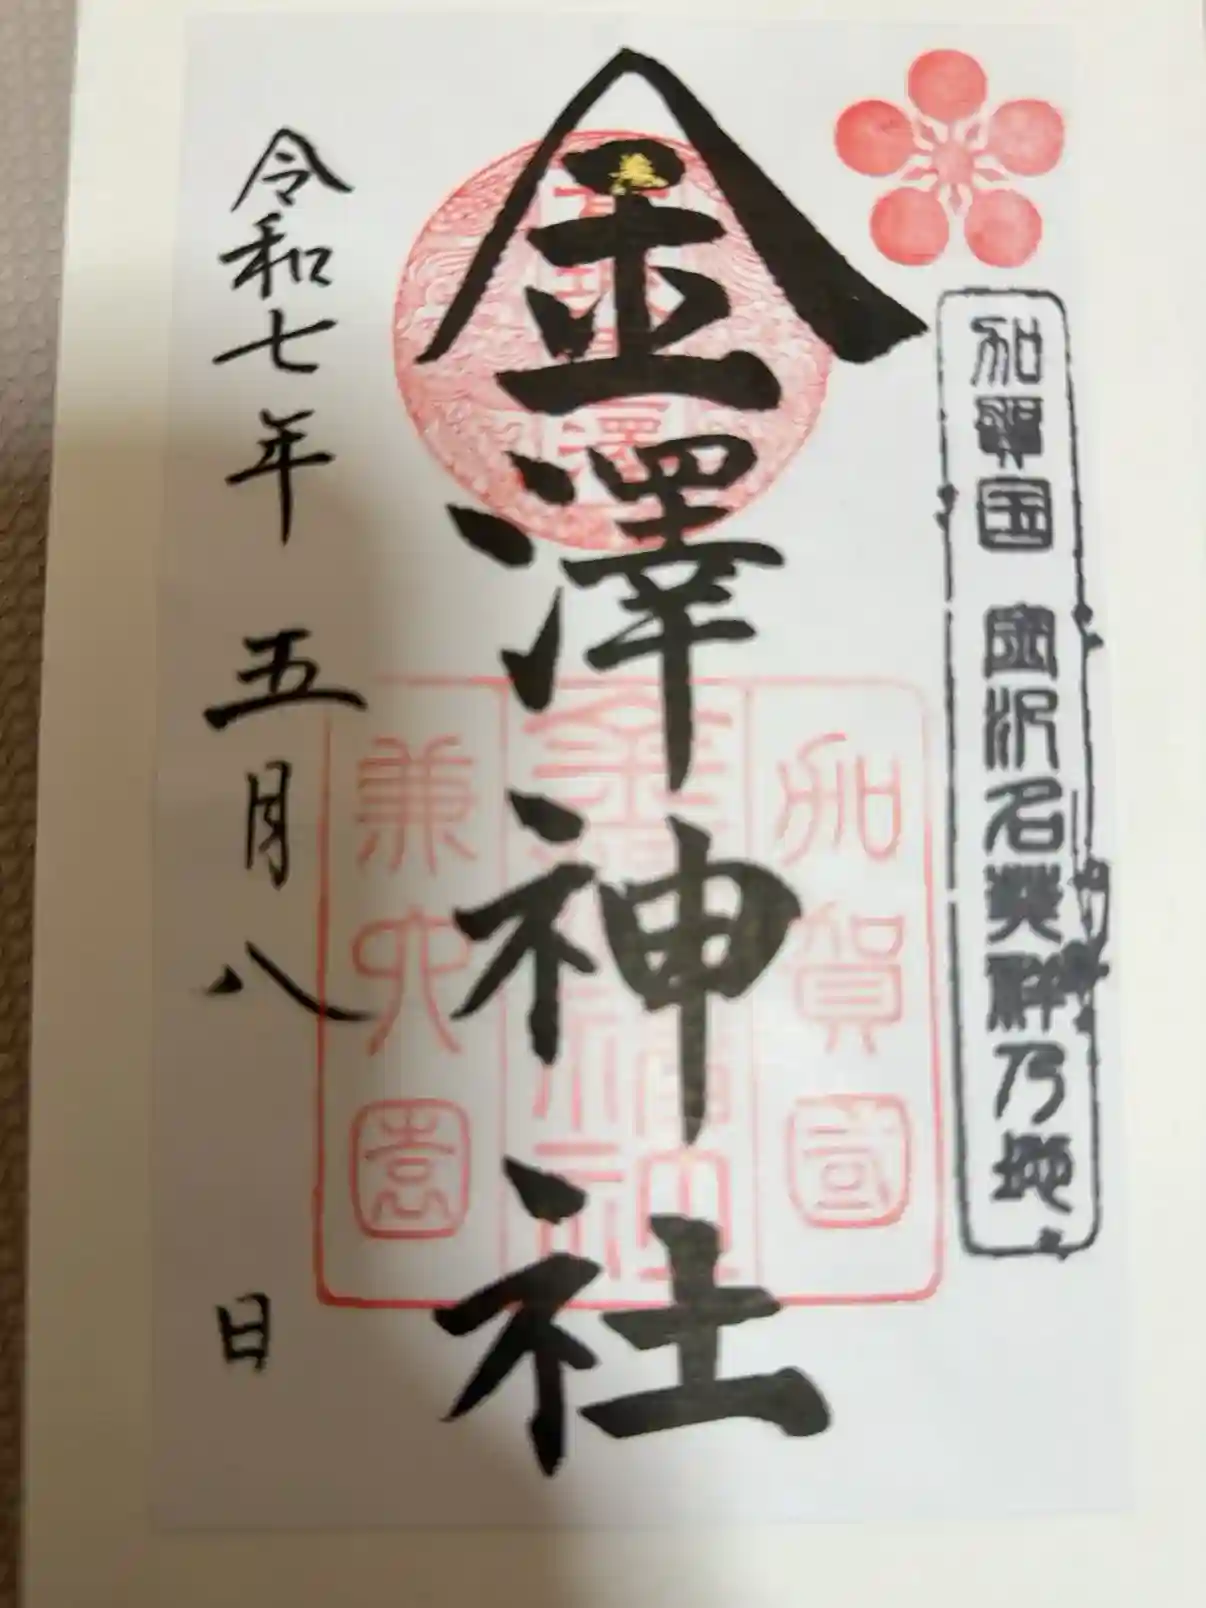 加賀国 金沢名発祥乃地
金澤神社
加賀國
金澤神社
兼六園
令和七年 五月八 日